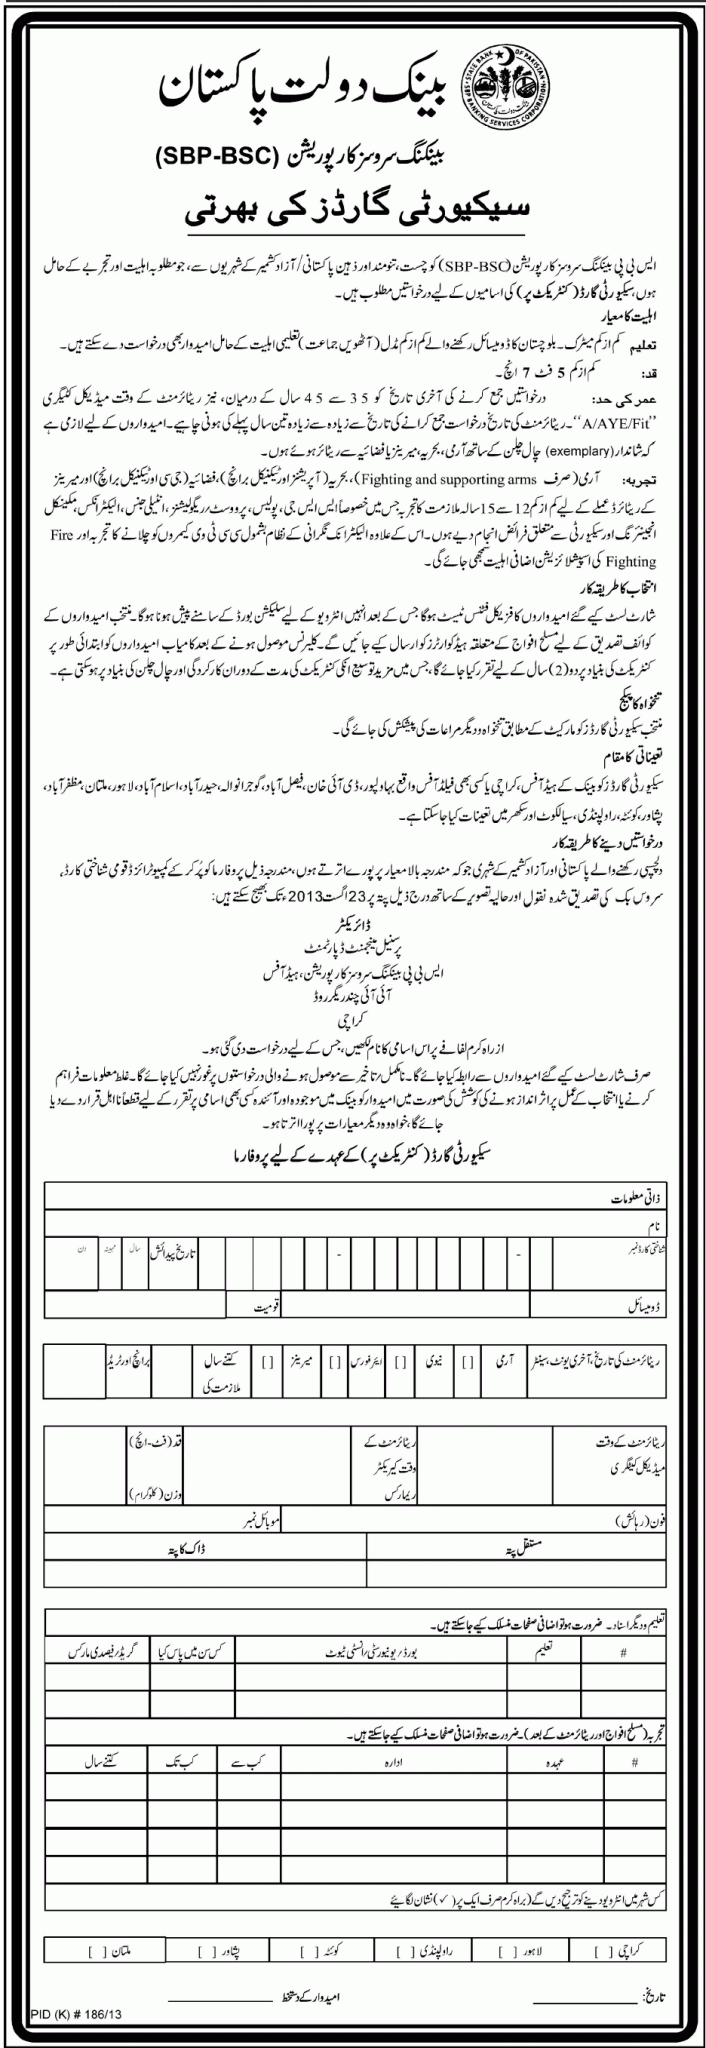 STATE BANK OF PAKISTAN
SBP BANKING SERVICES CORPORATION
بینک دولت پاکستان
بینکنگ سروسز کارپوریشن (SBP-BSC)
سیکیورٹی گارڈز کی بھرتی
ایس بی پی بینکنگ سروسز کارپوریشن (SBP-BSC) کو چست، تنومند اور ذہین پاکستانی/آزاد کشمیر کے شہریوں سے، جو مطلوبہ اہلیت اور تجربے کے حامل
ہوں، سیکیورٹی گارڈ (کنٹریکٹ پر) کی اسامیوں کے لیے درخواستیں مطلوب ہیں۔
اہلیت کا معیار
تعلیم کم از کم میٹرک۔ بلوچستان کا ڈومیسائل رکھنے والے کم از کم مڈل (آٹھویں جماعت) تعلیمی اہلیت کے حامل امیدوار بھی درخواست دے سکتے ہیں۔
قد: کم از کم 5 فٹ 7 انچ۔
عمر کی حد: درخواستیں جمع کرنے کی آخری تاریخ کو 35 سے 45 سال کے درمیان، نیز ریٹائرمنٹ کے وقت میڈیکل کٹیگری
"A/AYE/Fit"۔ ریٹائرمنٹ کی تاریخ درخواست جمع کرانے کی تاریخ سے زیادہ سے زیادہ تین سال پہلے کی ہونی چاہیے۔ امیدواروں کے لیے لازمی ہے
کہ شاندار (exemplary) چال چلن کے ساتھ آرمی، بحریہ، میرینز یا فضائیہ سے ریٹائر ہوئے ہوں۔
تجربہ: آرمی (صرف Fighting and supporting arms)، بحریہ (آپریشنز اور ٹیکنیکل برانچ)، فضائیہ (جی سی اور ٹیکنیکل برانچ) اور میرینز
کے ریٹائرڈ عملے کے لیے کم از کم 12 سے 15 سالہ ملازمت کا تجربہ جس میں خصوصاً ایس ایس جی، پولیس، پرووسٹ/ریگولیشنز، انٹیلی جنس، الیکٹرانکس، مکینیکل
انجینئرنگ اور سیکیورٹی سے متعلق فرائض انجام دیے ہوں۔ اس کے علاوہ الیکٹرانک نگرانی کے نظام بشمول سی سی ٹی وی کیمروں کو چلانے کا تجربہ اور Fire
Fighting کی اسپیشلائزیشن اضافی اہلیت سمجھی جائے گی۔
انتخاب کا طریقہ کار
شارٹ لسٹ کیے گئے امیدواروں کا فزیکل فٹنس ٹیسٹ ہوگا جس کے بعد انہیں انٹرویو کے لیے سلیکشن بورڈ کے سامنے پیش ہونا ہوگا۔ منتخب امیدواروں کے
کوائف تصدیق کے لیے مسلح افواج کے متعلقہ ہیڈکوارٹرز کو ارسال کیے جائیں گے۔ کلیرنس موصول ہونے کے بعد کامیاب امیدواروں کو ابتدائی طور پر
کنٹریکٹ کی بنیاد پر دو (2) سال کے لیے تقرر کیا جائے گا، جس میں مزید توسیع انکی کنٹریکٹ کی مدت کے دوران کارکردگی اور چال چلن کی بنیاد پر ہوسکتی ہے۔
تنخواہ کا پیکج
منتخب سیکیورٹی گارڈز کو مارکیٹ کے مطابق تنخواہ و دیگر مراعات کی پیشکش کی جائے گی۔
تعیناتی کا مقام
سیکیورٹی گارڈز کو بینک کے ہیڈ آفس، کراچی یا کسی بھی فیلڈ آفس واقع بہاولپور، ڈی آئی خان، فیصل آباد، گوجرانوالہ، حیدرآباد، اسلام آباد، لاہور، ملتان، مظفرآباد،
پشاور، کوئٹہ، راولپنڈی، سیالکوٹ اور سکھر میں تعینات کیا جاسکتا ہے۔
درخواستیں دینے کا طریقہ کار
دلچسپی رکھنے والے پاکستانی اور آزاد کشمیر کے شہری جو کہ مندرجہ بالا معیار پر پورے اترتے ہوں، مندرجہ ذیل پروفارما کو پُر کرکے کمپیوٹرائزڈ قومی شناختی کارڈ،
سروس بک کی تصدیق شدہ نقول اور حالیہ تصویر کے ساتھ درج ذیل پتہ پر 23 اگست 2013ء تک بھیج سکتے ہیں:
ڈائریکٹر
پرسنیل مینجمنٹ ڈپارٹمنٹ
ایس بی پی بینکنگ سروسز کارپوریشن، ہیڈ آفس
آئی آئی چندریگر روڈ
کراچی
ازراہ کرم لفافے پر اس اسامی کا نام لکھیں، جس کے لیے درخواست دی گئی ہو۔
صرف شارٹ لسٹ کیے گئے امیدواروں سے رابطہ کیا جائے گا۔ نامکمل/تاخیر سے موصول ہونے والی درخواستوں پر غور نہیں کیا جائے گا۔ غلط معلومات فراہم
کرنے یا انتخاب کے عمل پر اثر انداز ہونے کی کوشش کی صورت میں امیدوار کو بینک میں موجودہ اور آئندہ کسی بھی اسامی پر تقرر کے لیے قطعاً نااہل قرار دے دیا
جائے گا، خواہ وہ دیگر معیارات پر پورا اترتا ہو۔
سیکیورٹی گارڈ (کنٹریکٹ پر) کے عہدے کے لیے پروفارما
ذاتی معلومات
نام
شناختی کارڈ نمبر - - تاریخ پیدائش سال مہینہ دن
ڈومیسائل قومیت
ریٹائرمنٹ کی تاریخ، آخری یونٹ، سینٹر آرمی [ ] نیوی [ ] ایئرفورس [ ] میرینز [ ] کتنے سال ملازمت کی برانچ اور ٹریڈ
ریٹائرمنٹ کے وقت میڈیکل کیٹگری ریٹائرمنٹ کے وقت کیریکٹر ریمارکس قد (فٹ-انچ) وزن (کلوگرام)
فون (رہائش) موبائل نمبر
مستقل پتہ ڈاک کا پتہ
تعلیم و دیگر اسناد۔ ضرورت ہو تو اضافی صفحات منسلک کیے جاسکتے ہیں۔
# تعلیم بورڈ/یونیورسٹی/انسٹی ٹیوٹ کس سن میں پاس کیا گریڈ/فیصدی مارکس
تجربہ (مسلح افواج اور ریٹائرمنٹ کے بعد)۔ ضرورت ہو تو اضافی صفحات منسلک کیے جاسکتے ہیں۔
# عہدہ ادارہ کب سے کب تک کتنے سال
کس شہر میں انٹرویو دینے کو ترجیح دیں گے (براہ کرم صرف ایک پر (✓) نشان لگائیے
کراچی [ ] لاہور [ ] راولپنڈی [ ] کوئٹہ [ ] پشاور [ ] ملتان [ ]
تاریخ: امیدوار کے دستخط
PID (K) # 186/13